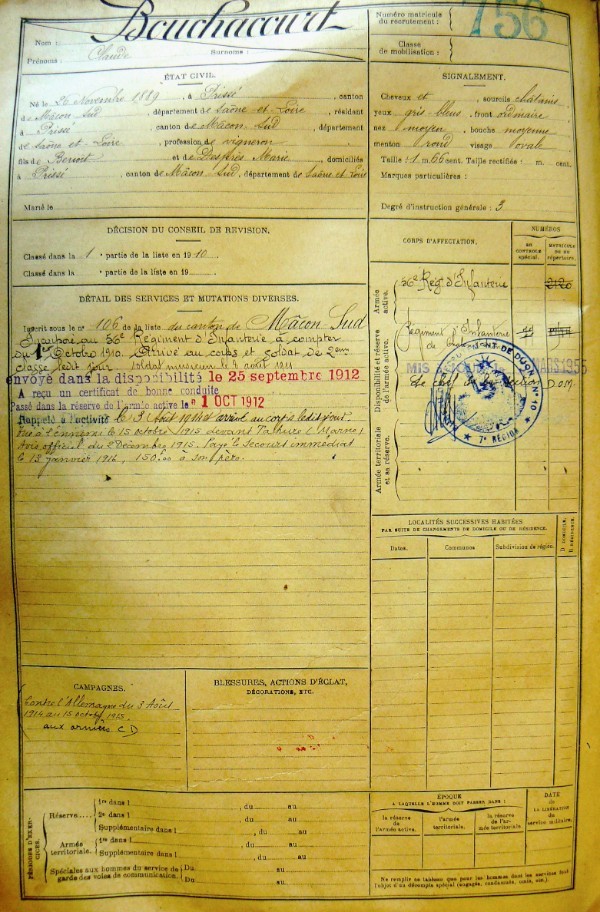 Bouchacourt
Nom :
Prénoms : Claude Surnoms :
Numéro matricule
du recrutement : 756
Classe
de mobilisation :
ÉTAT CIVIL.
Né le 26 Novembre 1889, à Prissé, canton
de Mâcon Sud, département de Saône-et-Loire, résidant
à Prissé, canton de Mâcon Sud, département
de Saône et Loire, profession de vigneron
fils de Benoit et de Desprès Marie, domiciliés
à Prissé, canton de Mâcon Sud, département de Saône et Loire
Marié le
SIGNALEMENT.
Cheveux et sourcils châtains
yeux gris-bleus, front ordinaire
nez moyen, bouche moyenne
menton rond visage ovale
Taille : 1 m. 66 cent. Taille rectifiée : m. cent.
Marques particulières :
Degré d'instruction générale : 3
DÉCISION DU CONSEIL DE REVISION.
Classé dans la 1e partie de la liste en 1910.
Classé dans la partie de la liste en 19
DÉTAIL DES SERVICES ET MUTATIONS DIVERSES.
Inscrit sous le no 106 de la liste du canton de Mâcon-Sud
au 56e Régiment d'Infanterie à compter
du 1er Octobre 1910. Arrivé au corps et soldat de 2eme
classe ledit jour soldat musicien le 9 août 1911
envoyé dans la disponibilité le 25 septembre 1912
A reçu un certificat de bonne conduite
Passé dans la réserve de l'armée active le 1 OCT 1912
Rappelé à l'activité le 3 Août 1914 et arrivé au corps ledit jour.
Tué à l'ennemi le 15 octobre 1915 devant Tahure (Marne)
Avis officiel du 2 Décembre 1915. Payé le secours immédiat
le 13 janvier 1916. 150 fcs à son père.
CORPS D'AFFECTATION.
NUMÉROS
AU CONTROLE spécial.
MATRICULE OU DU répertoire.
Armée active.
56e Régt d'Infanterie
Disponibilité et réserve de l'armée active.
Régiment d'Infanterie
MIS A JOUR MARS 1955
Le chef de section D.O.M.
7e RÉGION
Armée territoriale et sa réserve.
LOCALITÉS SUCCESSIVES HABITÉES
PAR SUITE DE CHANGEMENTS DE DOMICILE OU DE RÉSIDENCE.
Dates. Communes Subdivision de région. D. DOMICILE. R. RÉSIDENCE.
CAMPAGNES.
Contre l'Allemagne du 3 Août
1914 au 15 octobre 1915
aux armées C D
BLESSURES, ACTIONS D'ÉCLAT,
DÉCORATIONS, ETC.
PÉRIODES D'EXERCICES.
Réserve
1re dans l , du au
2e dans l , du au
Supplémentaire dans l , du au
Armée territoriale.
1re dans l , du au
Supplémentaire dans l , du au
Spéciales aux hommes du service de
garde des voies de communication. Du au
Du au
ÉPOQUE
A LAQUELLE L'HOMME DOIT PASSER DANS :
la réserve de l'armée active.
l'armée territoriale.
la réserve de l'armée territoriale.
DATE
DE LA LIBÉRATION
du service militaire.
Ne remplir ce tableau que pour les hommes dont les services font
l'objet d'un décompte spécial (engagés, condamnés, omis, etc.).